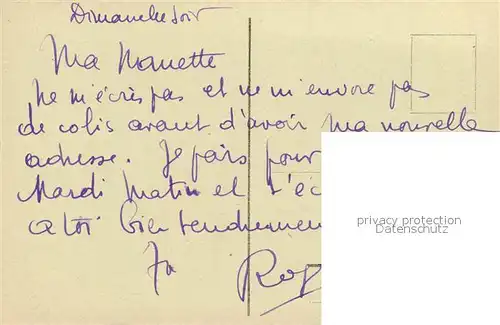 Dimanche soir
Ma Nanette
Ne m'écris pas et ne m'envoie pas
de colis avant d'avoir ma nouvelle
adresse. Je pars pour
Mardi matin et t'éc
privacy protection
Datenschutz
a toi bien tendremen